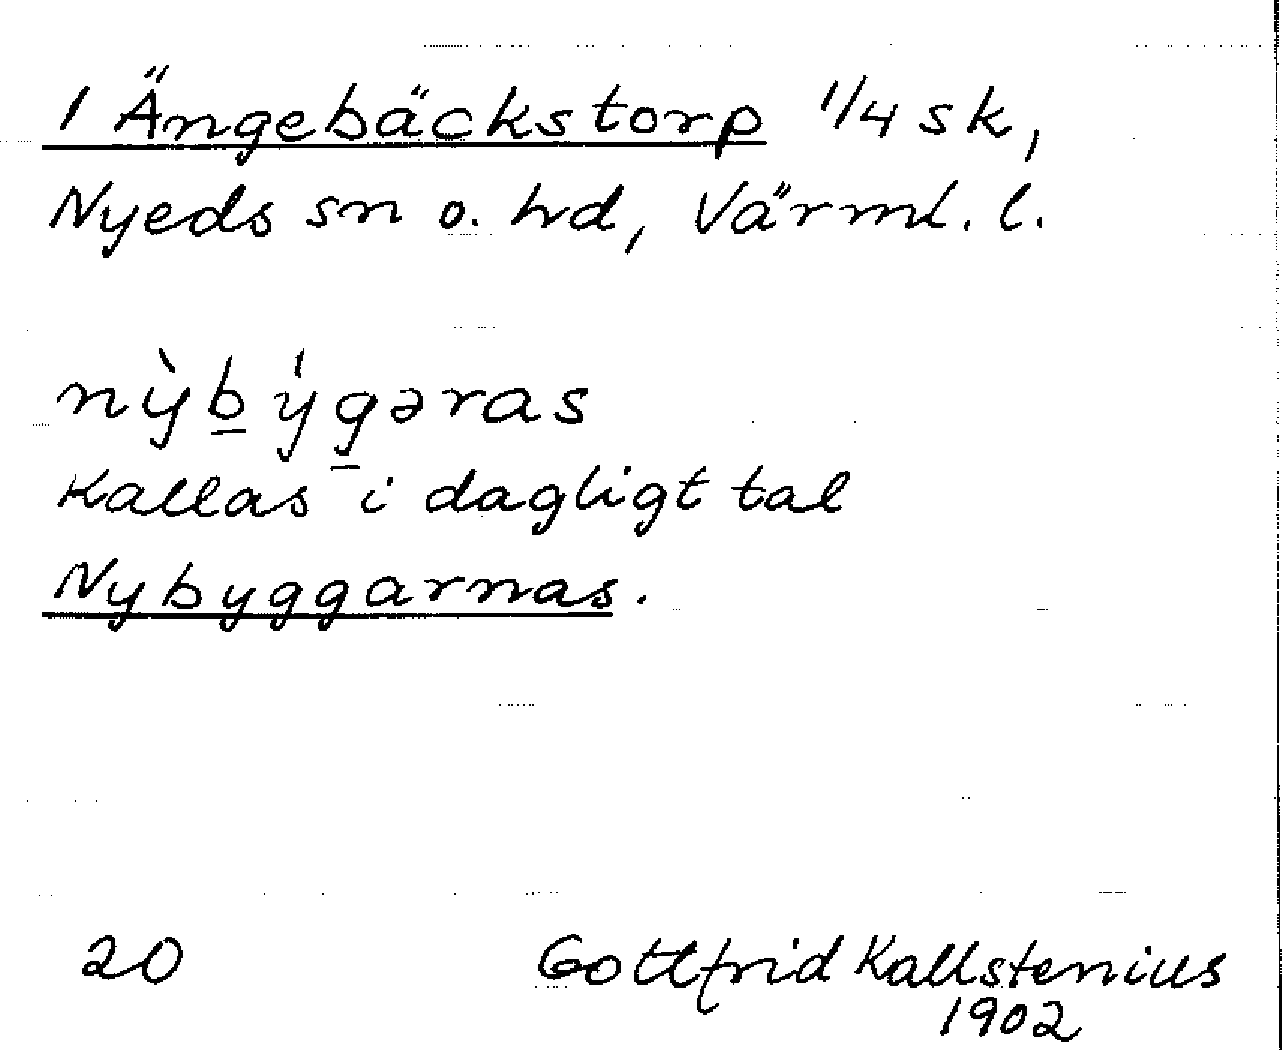 1 Ängebäckstorp 1/4 sk,
Nyeds sn o. hd, Värml. l.
nỳb̲ýg̲əras
Kallas i dagligt tal
Nybyggarnas.
20 Gottfrid Kallstenius
1902